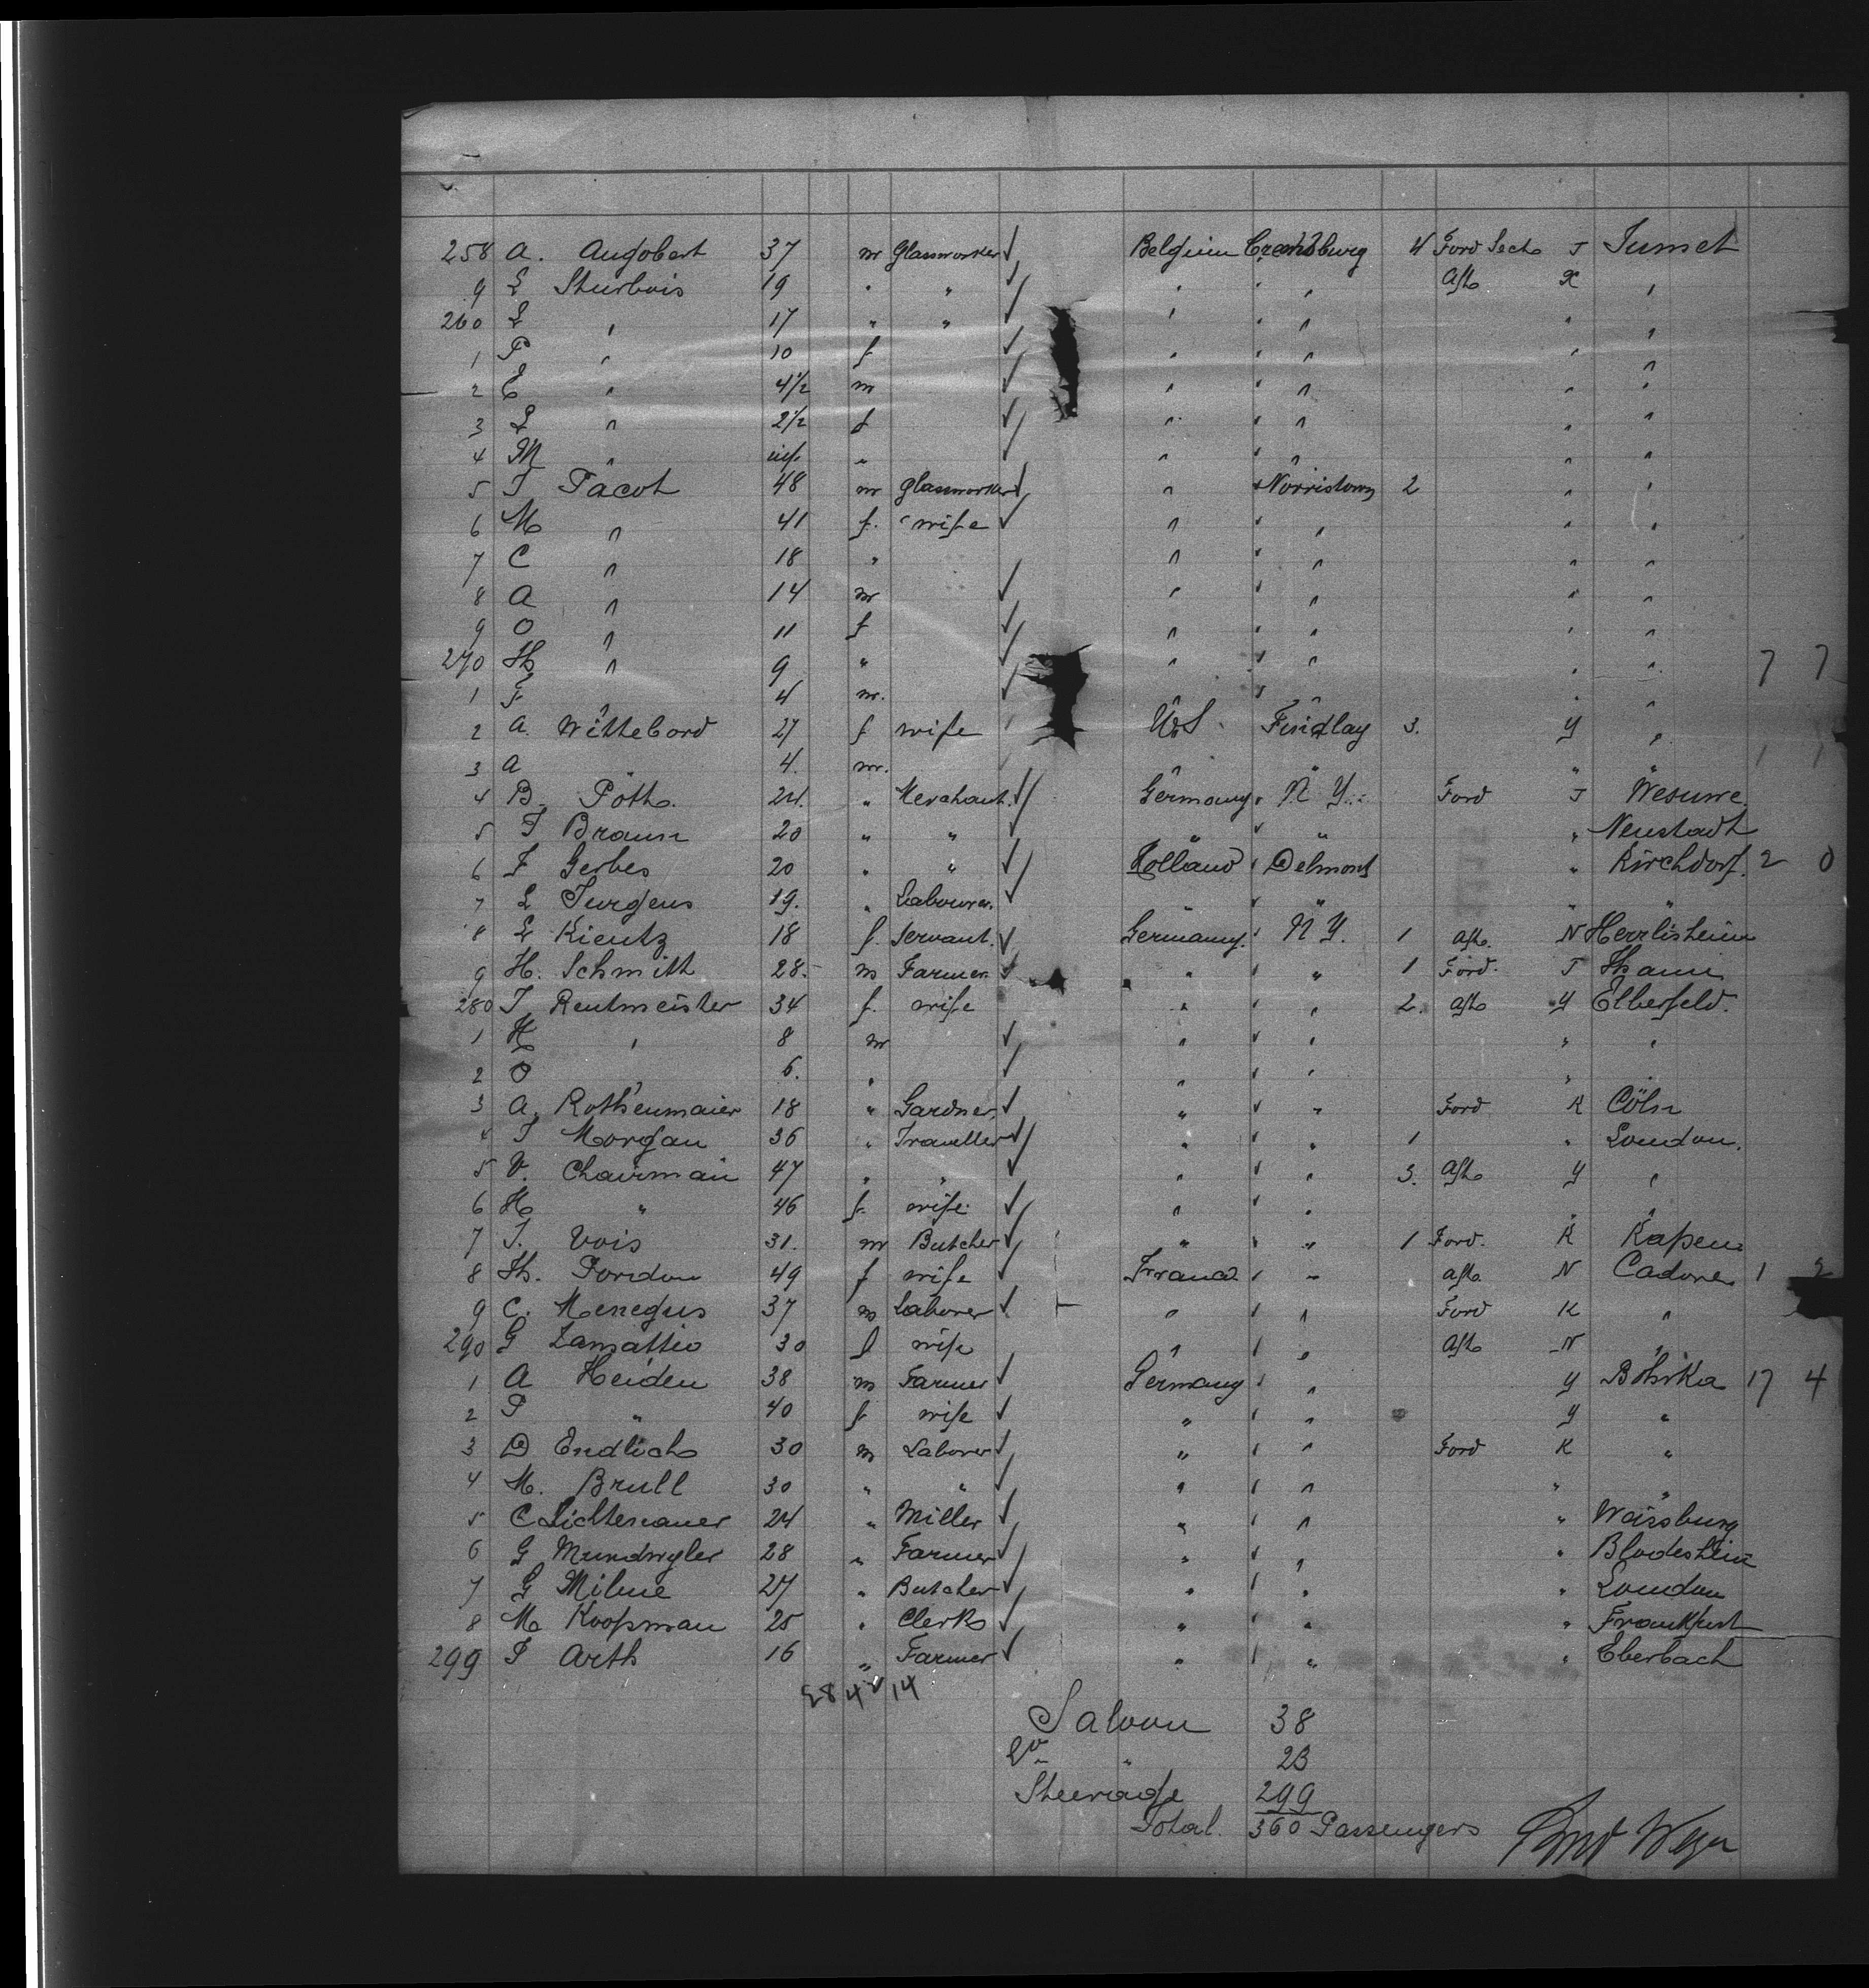 258 A. Augobert 37 m Glassworker ✓ Belgium 4 Ford Sect J Jumet
9 L Sturbois 19 " " ✓ " " " Aft X "
260 L " 17 " " ✓ " " " " "
1 P " 10 f ✓ " " " " "
2 E " 4½ m ✓ " " " " "
3 L " 2½ f ✓ " " " " "
4 M " inf. " ✓ " " " " "
5 J Pacot 48 m glassworker ✓ " " Norristown 2 " "
6 M " 41 f. wife ✓ " " " " "
7 C " 18 " " " " " "
8 A " 14 m ✓ " " " " "
9 O " 11 f ✓ " " " " "
270 Th " 9 " ✓ " " " " " 7 7
1 F " 4 m. ✓ " " " " "
2 A. Wittebord 27 f wife U.S. Findlay 3. Y "
3 A " 4. m. " " " " 1 1
4 B. Poth. 24. " Merchant. ✓ Germany " N Y. Ford J Wesuwe.
5 J Braun 20 " " ✓ " " " " Neustadt
6 F Gerbes 20 " " ✓ Holland " Delmont " Kirchdorf. 2 0
7 L Jurgens 19. " Labourer. ✓ " " " " "
8 L Kientz 18 f. Servant. ✓ Germany. " N Y. 1 Aft. N Herrlisheim
9 H. Schmitt 28. m Farmer. ✓ " " 1 Ford. J Thann
280 J. Rentmeister 34 f. wife " " " 2. Aft Y Elberfeld.
1 H " 8 m ✓ " " " " "
2 O " 6. " ✓ " " " " "
3 A. Rothenmaier 18 " Gardner. ✓ " " " Ford K Cöln
4 J Morgan 36 " Traveller ✓ " " 1 " London.
5 V. Chairman 47 " " ✓ " " " 3. Aft Y "
6 H " 46 f. wife ✓ " " " " "
7 J. Vois 31. m Butcher ✓ " " " 1 Ford. K Kapen
8 Th. Pordon 49 f wife ✓ France " " Aft. N Cadore 1 2
9 C. Menegus 37 m Laborer ✓ " " " Ford K "
290 G Zamattio 30 f wife " " " Aft N "
1 A Heiden 38 m Farmer ✓ Germany " " Y 17 4
2 P " 40 f wife ✓ " " " Y "
3 D Endlich 30 m Laborer ✓ " " " Ford K "
4 M. Brull 30 " " ✓ " " " " "
5 C Lichtenauer 24 " Miller ✓ " " " " Waissburg
6 G Mundwyler 28 " Farmer ✓ " " " " Blodesheim
7 G Milne 27 " Butcher ✓ " " " " London
8 M Koopman 25 " Clerk ✓ " " " " Frankfurt
299 J Arth 16 " Farmer ✓ " " " " Eberbach
284 ✓ 14
Saloon 38
2d " 23
Steerage 299
Total. 360 Passengers